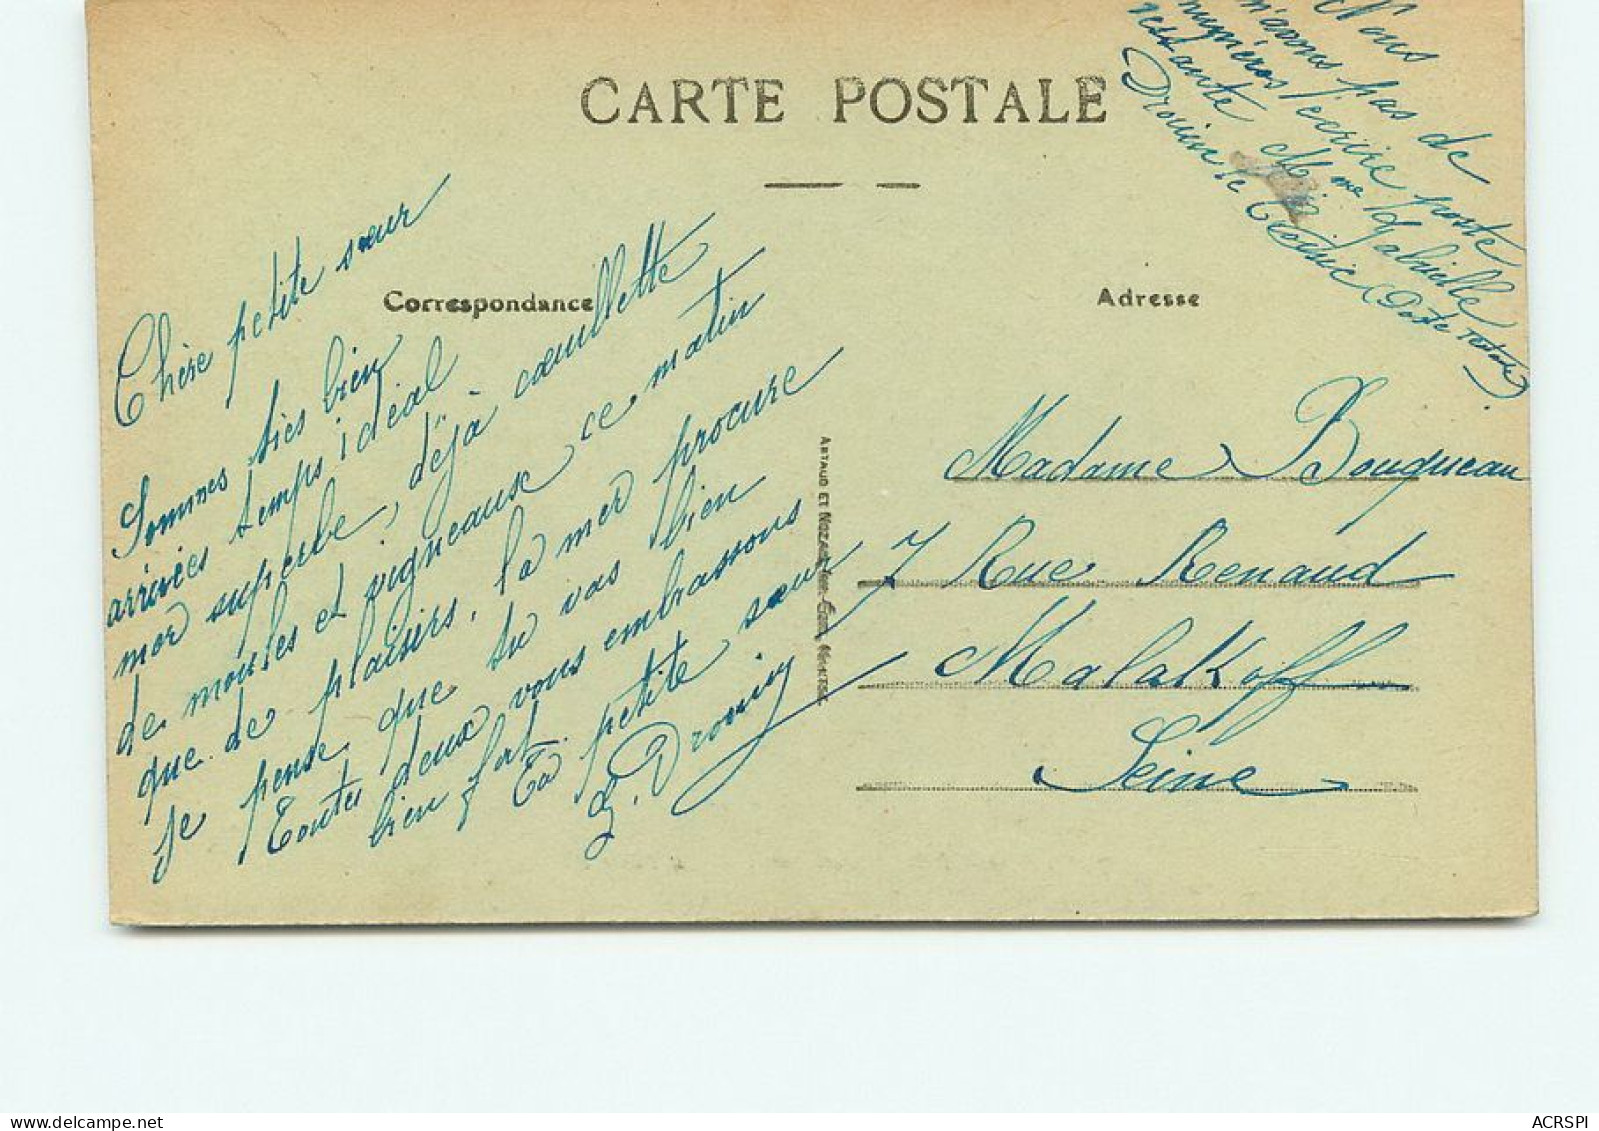 CARTE POSTALE
Nous
n'avons pas de
numéros, écrire poste
restante Mme Gabrielle
Drouin Le Croisic (Poste restante)
Correspondance
Adresse
Chère petite sœur
Sommes très bien
arrivées temps idéal
mer superbe, déjà cueillette
de moules et vigneaux ce matin
que de plaisirs, la mer procure
je pense que tu vas bien
Toutes deux vous embrassons
bien fort.
Ta petite sœur
G. Drouin
ARTAUD ET NOZAIS
Madame Bougneau
7 Rue Renaud
Malakoff
Seine
ACRSPI